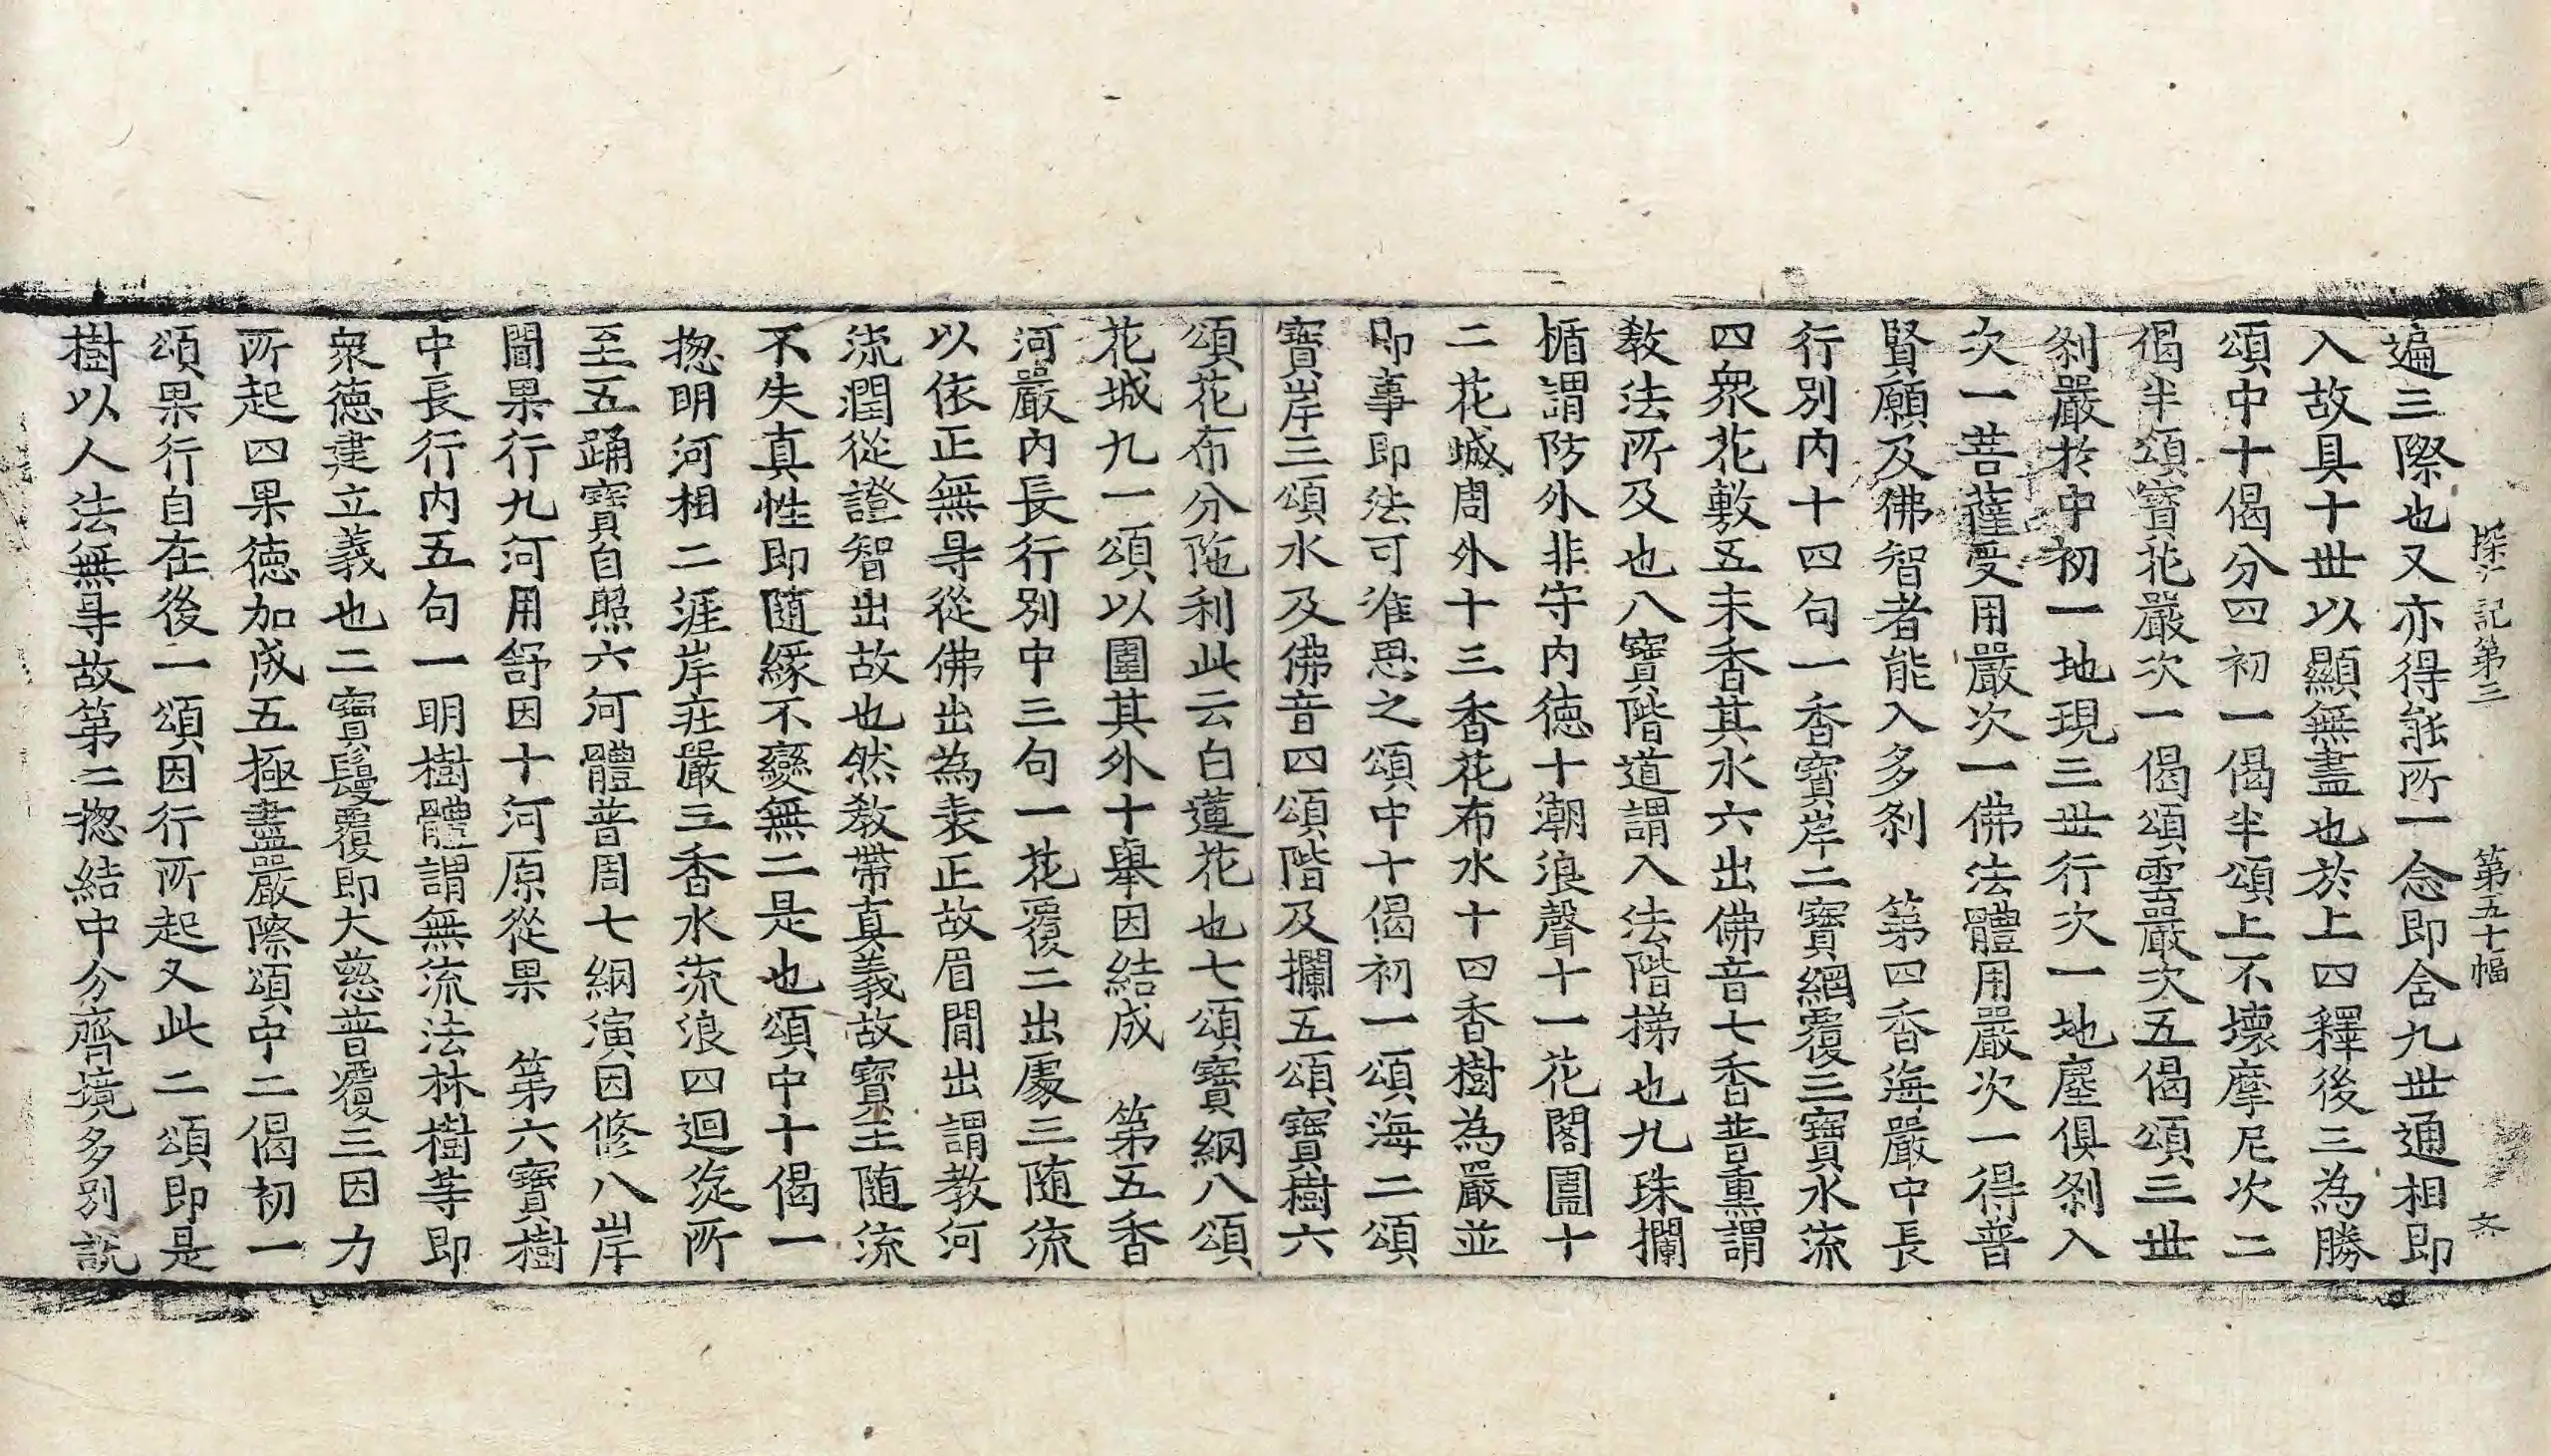 探玄記第三 第五十幅 文
遍三際也又亦得能所一念即舍九世通相即
入故具十世以顯無盡也於上四釋後三為勝
頌中十偈分四初一偈半頌上不壞摩尼次二
偈半頌寶花嚴次一偈頌雲嚴次五偈頌三世
剎嚴於中初一地現三世行次一地塵俱剎入
次一菩薩受用嚴次一佛法體用嚴次一得普
賢願及佛智者能入多剎 第四香海嚴中長
行別内十四句一香寶岸二寶網覆三寶水流
四衆花敷五末香其水六出佛音七香普熏謂
教法所及也八寶階道謂入法階梯也九珠攔
楯謂防外非守内德十潮浪聲十一花閣圍十
二花城周外十三香花布水十四香樹為嚴並
即事即法可准思之頌中十偈初一頌海二頌
寶岸三頌水及佛音四頌階及攔五頌寶樹六
頌花布分陁利此云白蓮花也七頌寶網八頌
花城九一頌以圍其外十舉因結成 第五香
河嚴内長行別中三句一花覆二出處三隨流
以依正無㝵從佛出為表正故眉間出謂教河
流潤從證智出故也然教帶真義故寶玉隨流
不失真性即隨緣不變無二是也頌中十偈一
揔明河相二涯岸莊嚴三香水流浪四迴流所
至五踊寶自照六河體普周七網演因修八岸
圖果行九河用舒因十河原從果 第六寶樹
中長行内五句一明樹體謂無流法林樹等即
衆德建立義也二寶鬘覆即大慈普覆三因力
所起四果德加成五極盡嚴際頌中二偈初一
頌果行自在後一頌因行所起又此二頌即是
樹以人法無㝵故第二揔結中分齊境多別説